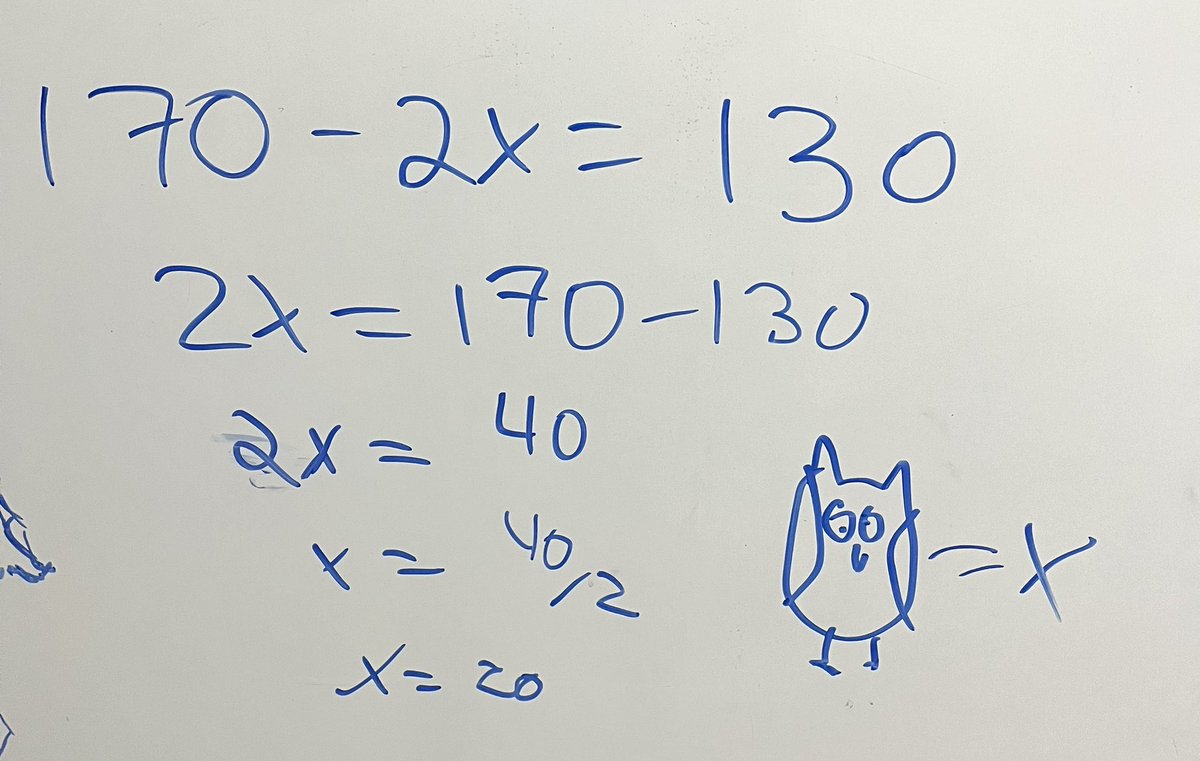 170 - 2x = 130
2x = 170 - 130
2x = 40
x = 40/2
= x
x = 20